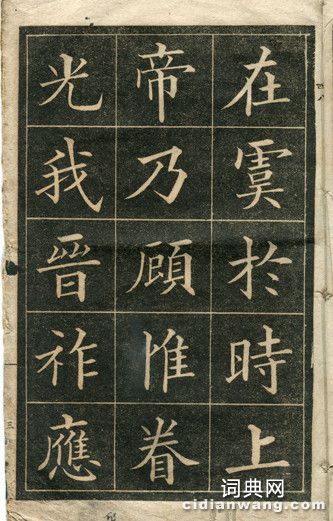 在虞於時上
帝乃顧惟眷
光我晉祚應
三
词典网
cidianwang.com